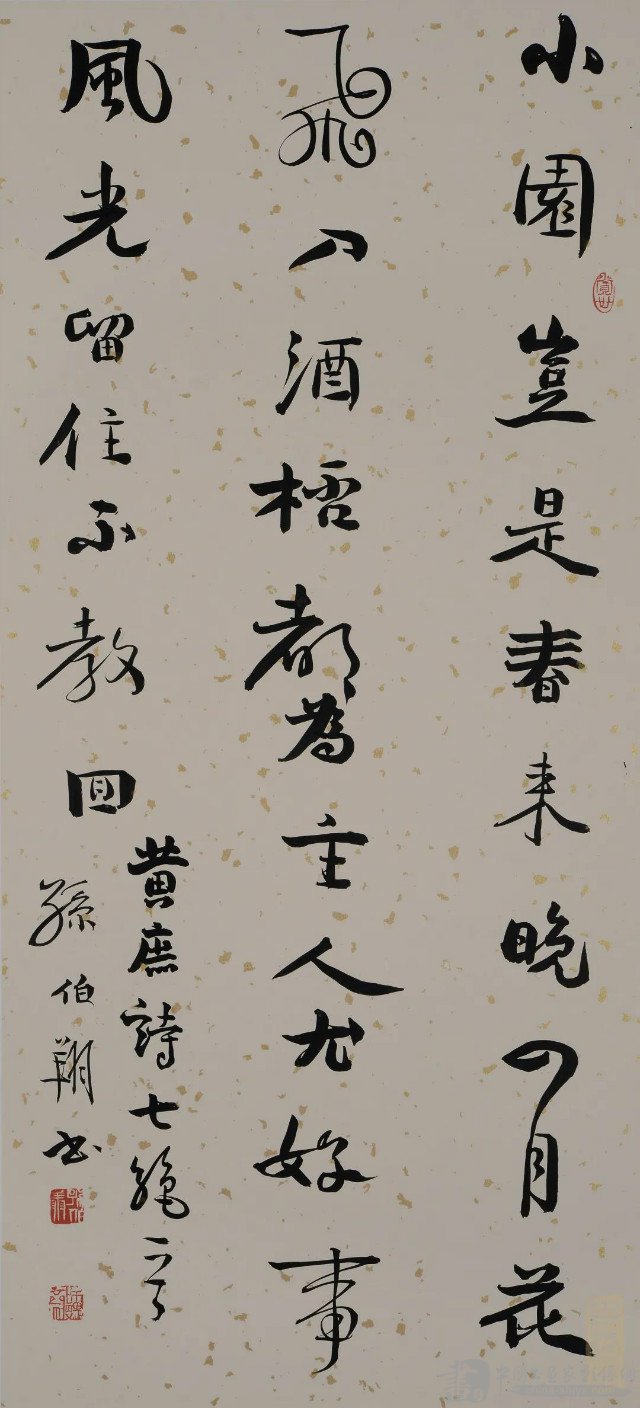 小園豈是春来晚四月花
飛入酒桮都為主人尤好事
風光留住不教回
黄庶詩七絶一首
孫伯翔書